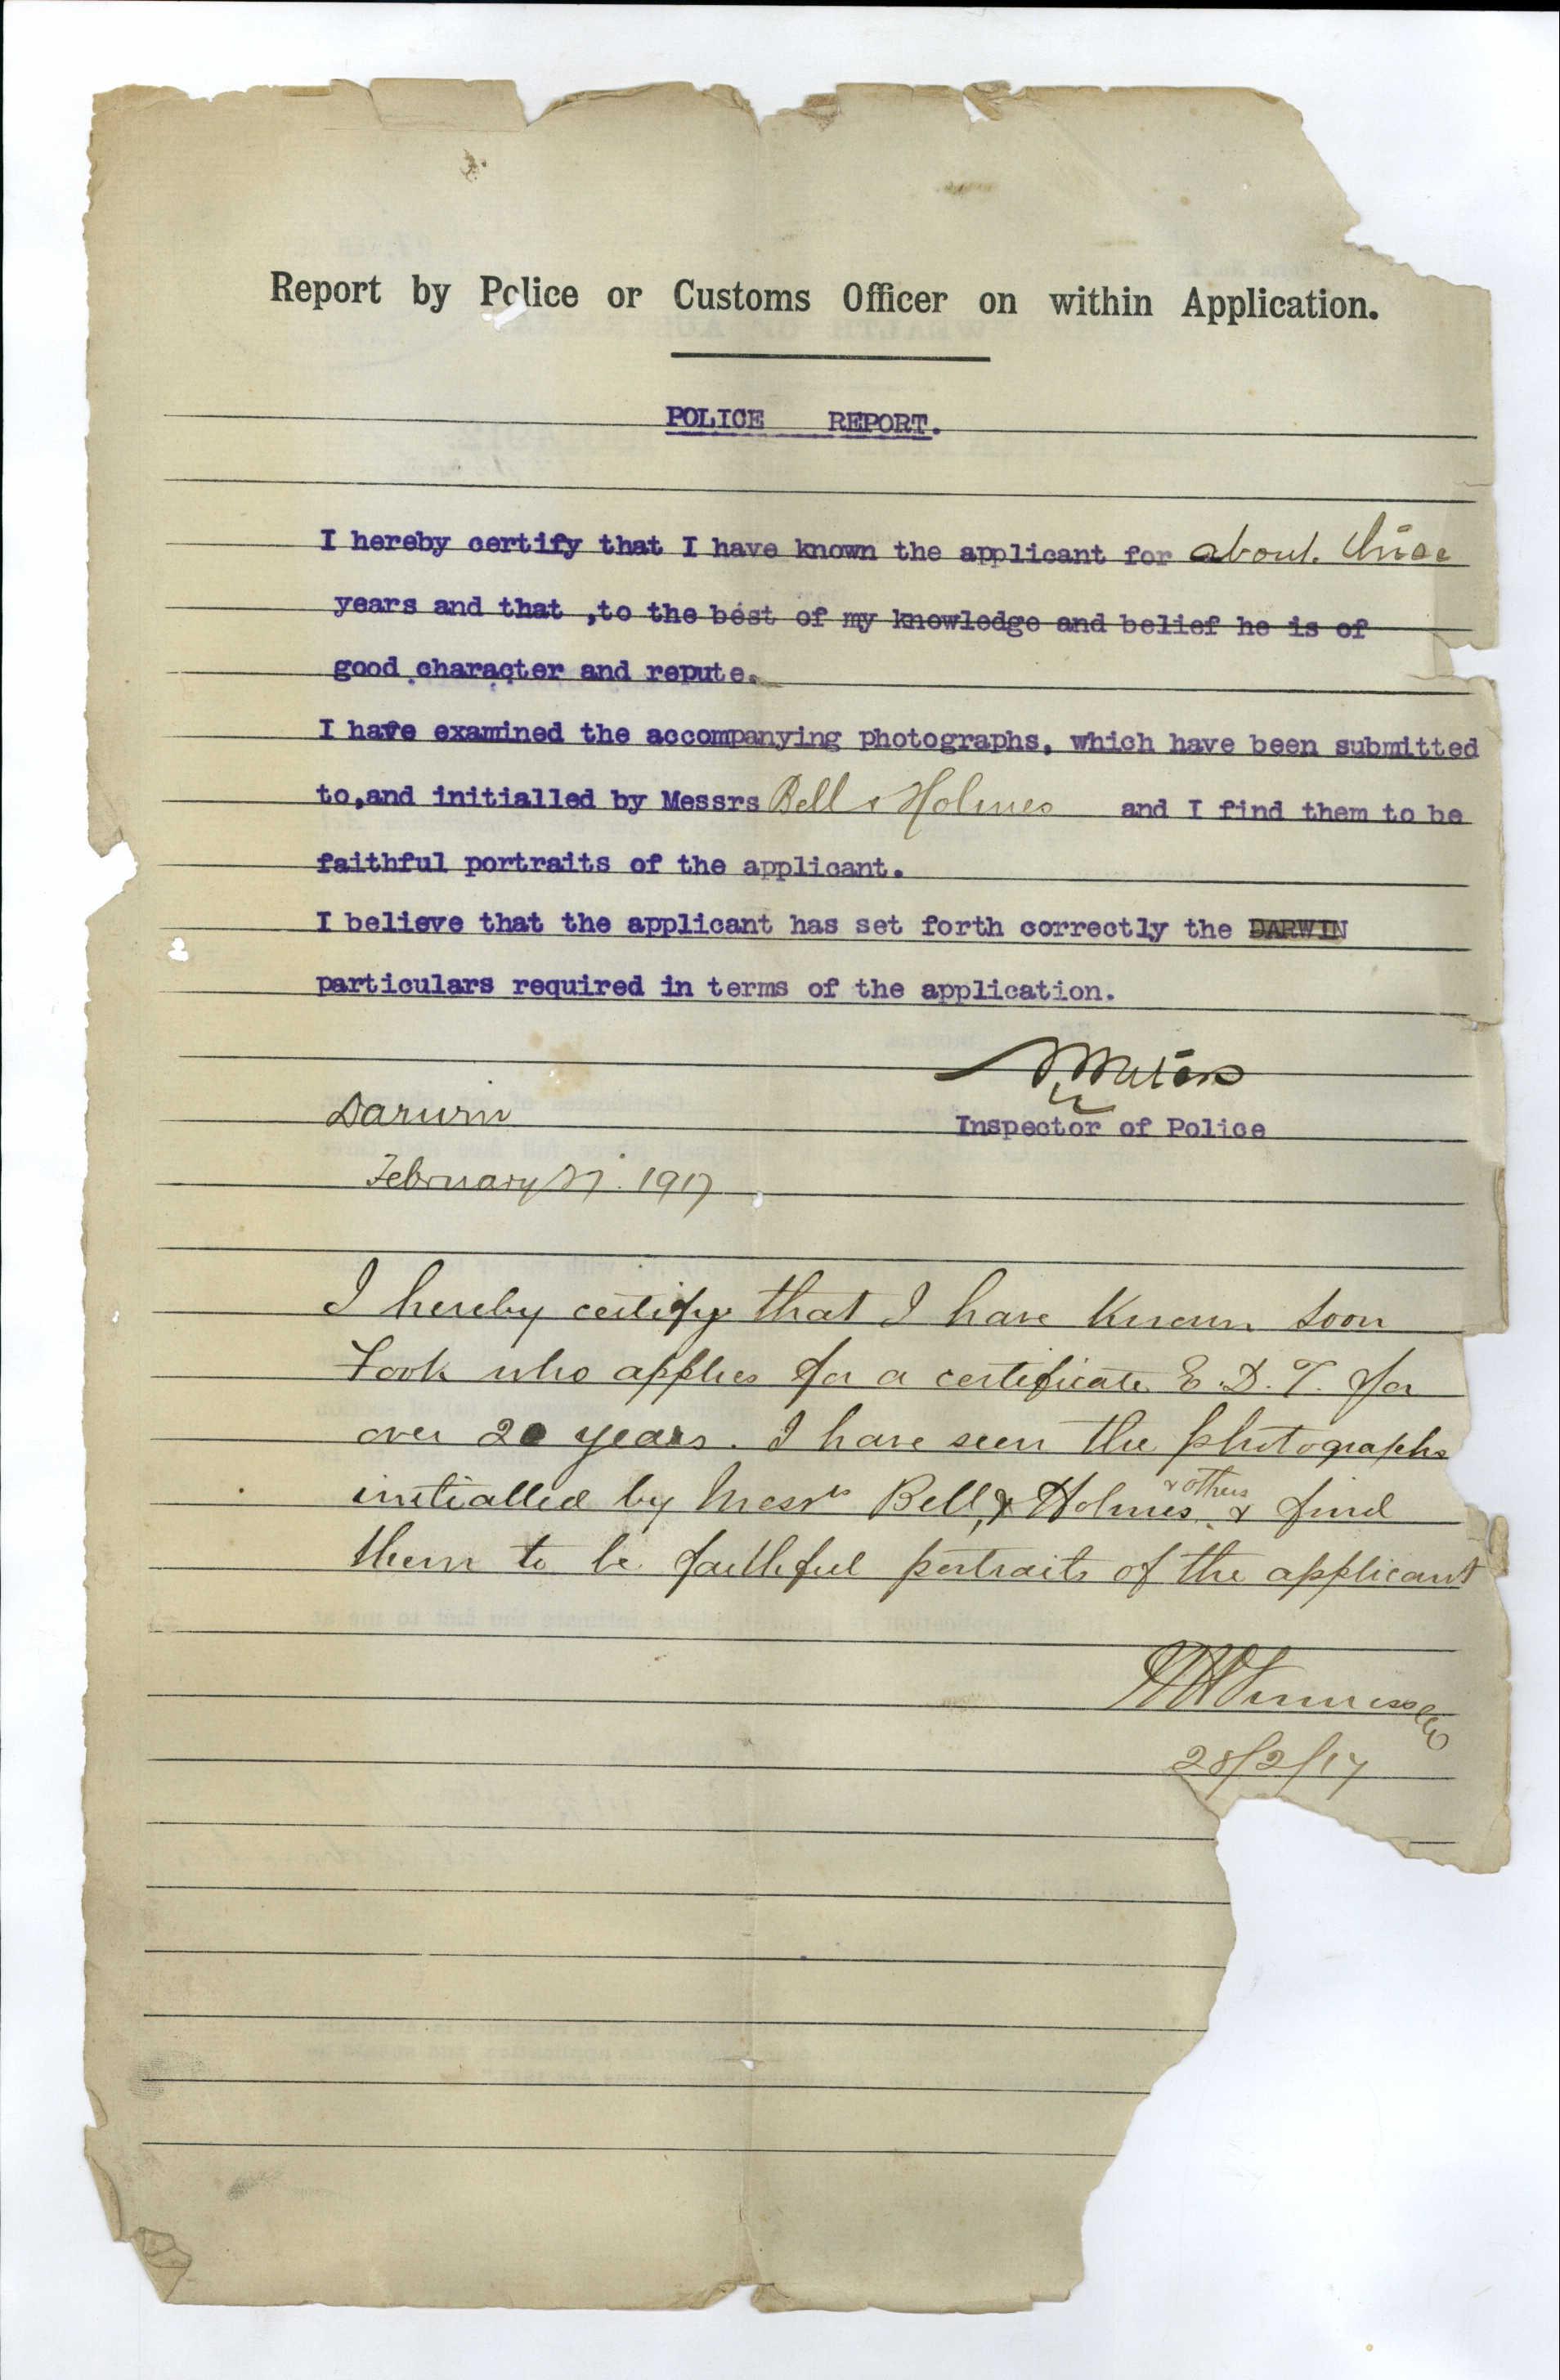 Report by Police or Customs Officer on within Application.
POLICE REPORT.
I hereby certify that I have known the applicant for about three
years and that ,to the best of my knowledge and belief he is of
good character and repute.
I have examined the accompanying photographs, which have been submitted
to,and initialled by Messrs Bell & Holmes and I find them to be
faithful portraits of the applicant.
I believe that the applicant has set forth correctly the DARWIN
particulars required in terms of the application.
Inspector of Police
Darwin
February 27. 1917
I hereby certify that I have known Soon
Fook who applies for a certificate E.D.T. for
over 20 years. I have seen the photographs
initialled by Messrs Bell, & Holmes & others & find
them to be faithful portraits of the applicant
28/2/17